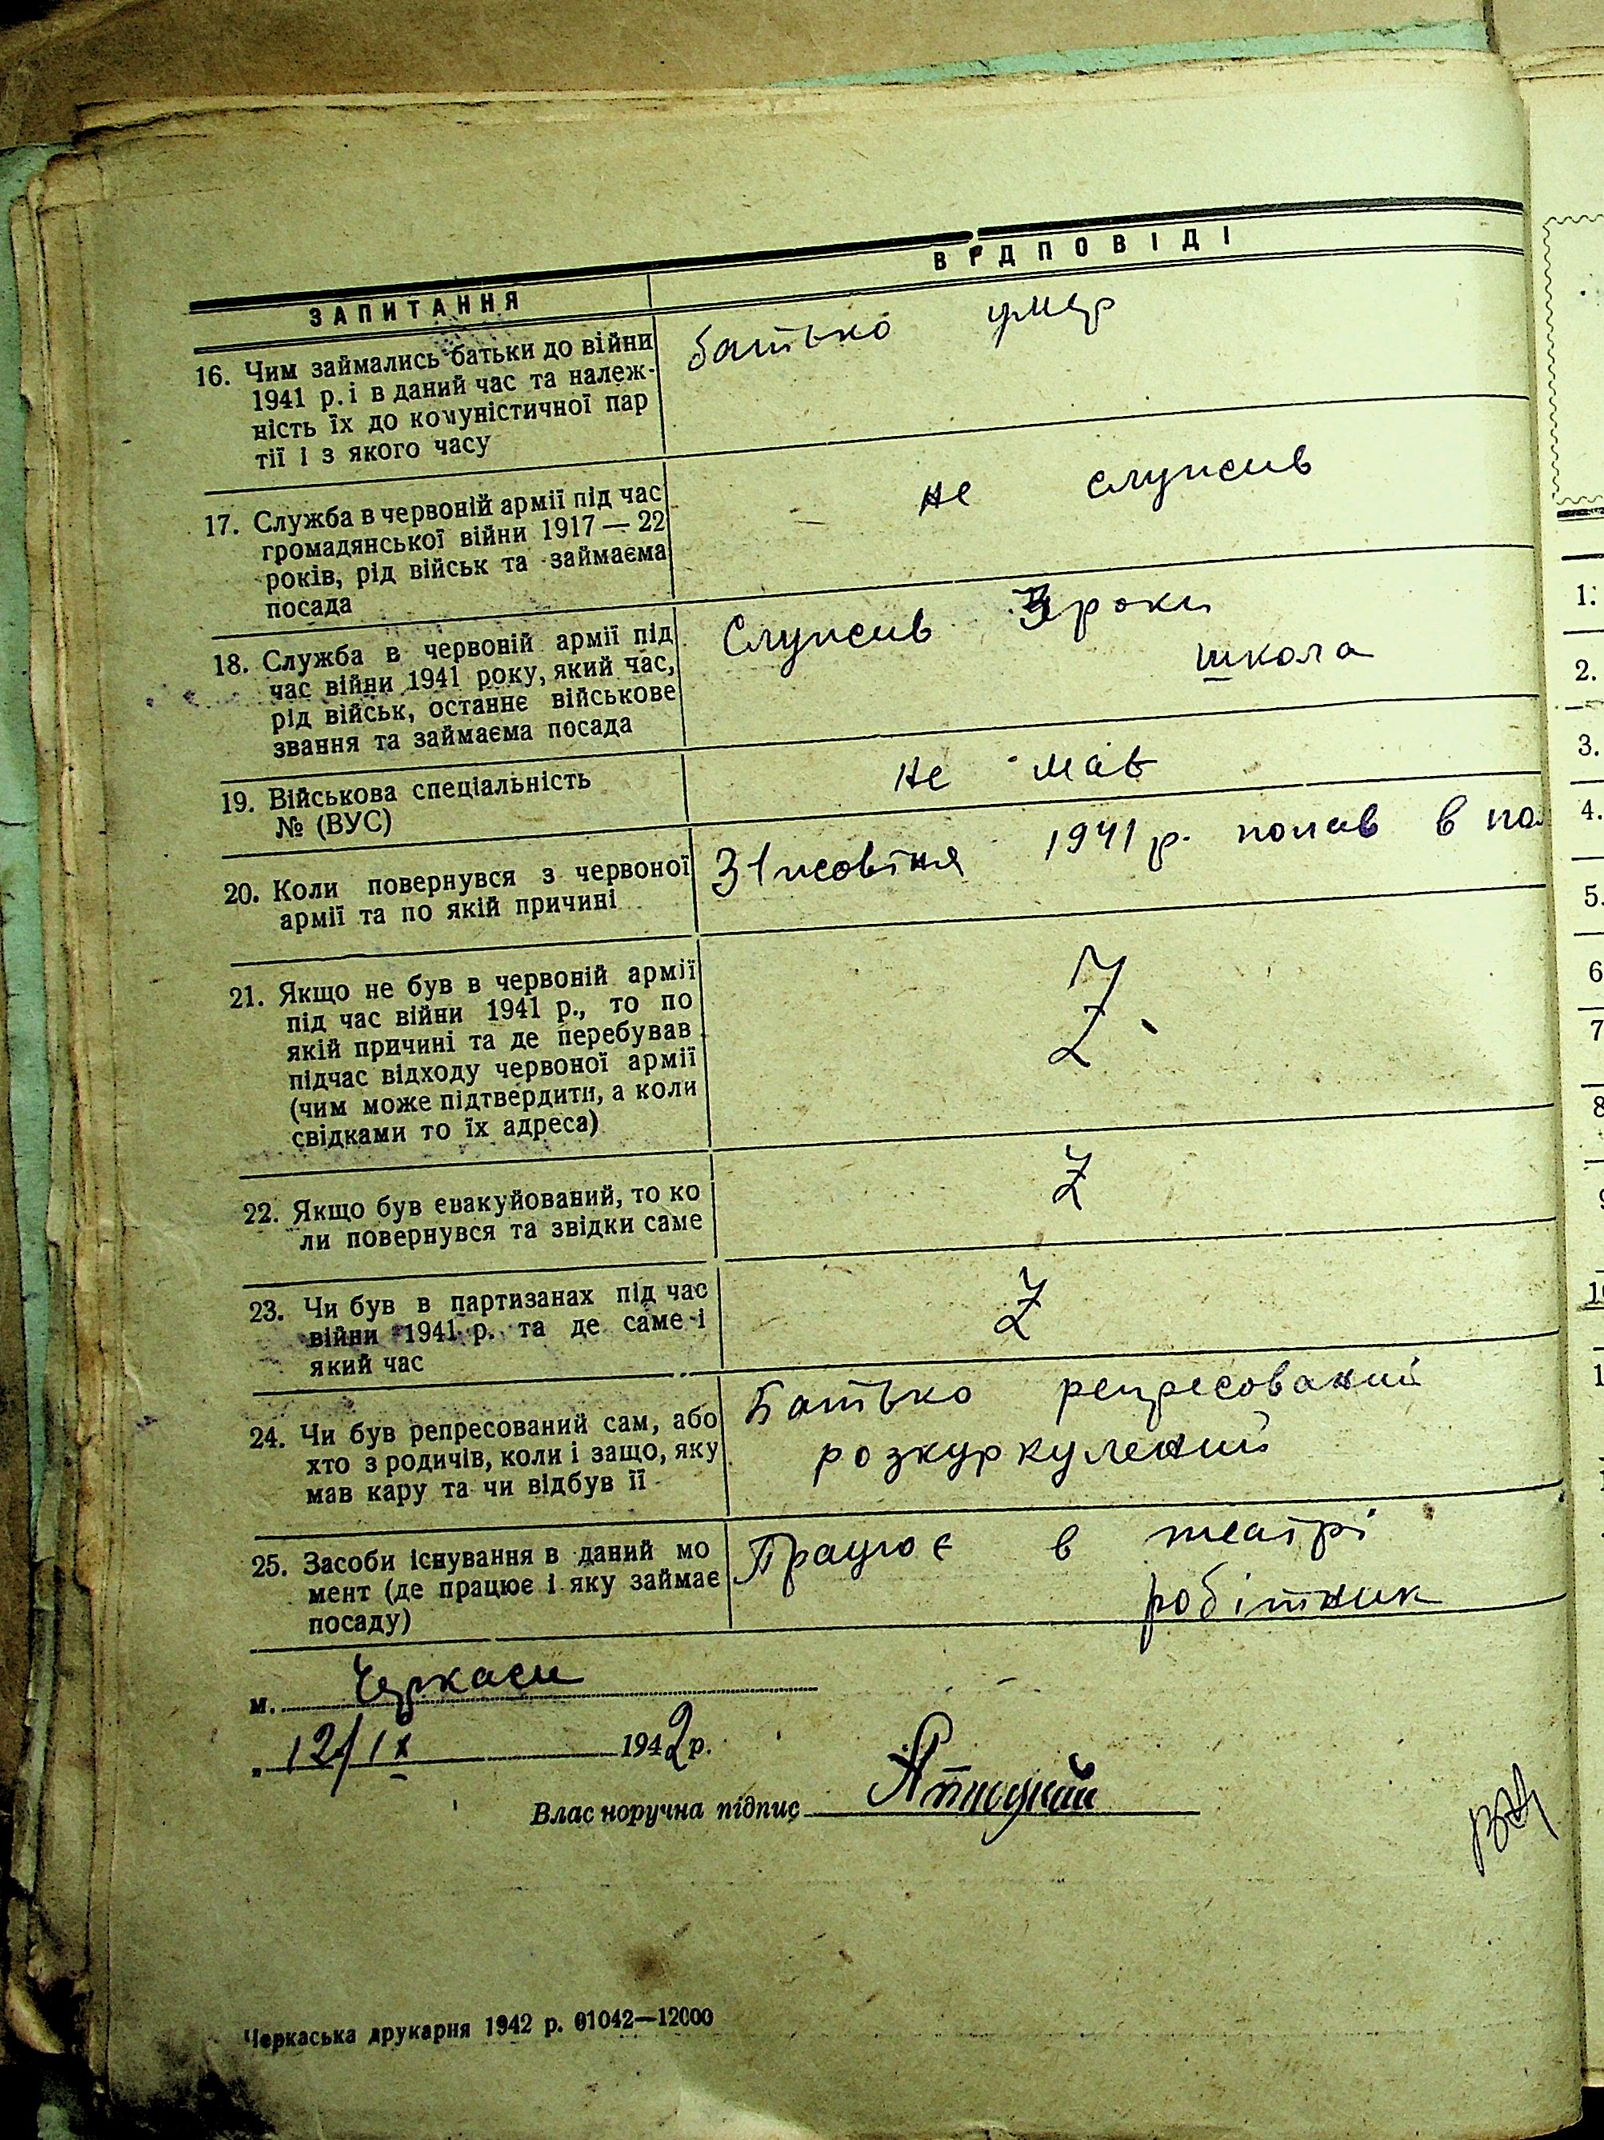 ЗАПИТАННЯ
ВІДПОВІДІ
16. Чим займались батьки до війни
1941 р. і в даний час та належ-
ність їх до комуністичної пар
тії і з якого часу
батько умер
17. Служба в червоній армії під час
громадянської війни 1917—22
років, рід військ та займаєма
посада
не служив
18. Служба в червоній армії під
час війни 1941 року, який час,
рід військ, останнє військове
звання та займаєма посада
Служив 3 роки
школа
19. Військова спеціальність
№ (ВУС)
не мав
20. Коли повернувся з червоної
армії та по якій причині
31 жовтня 1941 р. попав в по
21. Якщо не був в червоній армії
під час війни 1941 р., то по
якій причині та де перебував
підчас відходу червоної армії
(чим може підтвердити, а коли
свідками то їх адреса)
Z
22. Якщо був евакуйований, то ко
ли повернувся та звідки саме
Z
23. Чи був в партизанах під час
війни 1941 р. та де саме і
який час
Z
24. Чи був репресований сам, або
хто з родичів, коли і защо, яку
мав кару та чи відбув її
Батько репресований
розкуркулений
25. Засоби існування в даний мо
мент (де працює і яку займає
посаду)
Працює в театрі
робітник
м. Черкаси
„ 12/IX 1942 р.
Власноручна підпис
Черкаська друкарня 1942 р. 01042—12000
1.
2.
3.
4.
5.
6
7
8